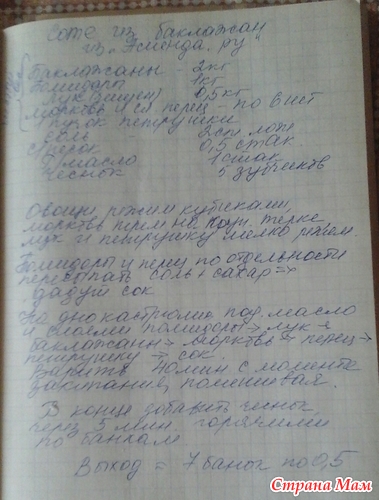 Соте из баклажан
из "Эменда. ру"
Баклажаны - 2кг
Помидоры 1кг
Лук 0,5кг
морковь и сл перец - по 3 шт
пучок петрушки
соль - 2 ст лож
0,5 стак
р/масло 1 стак
чеснок 5 зубчиков
Овощи режим кубиками,
морковь трем на терке,
лук и петрушку мелко режем.
Помидоры и перец по отдельности
пересыпать соль + сахар =>
дадут сок
На дно кастрюли под. масло
и слоями помидоры → лук →
баклажаны → морковь → перец →
петрушку → сок.
Варить 40 мин с момента
закипания, помешивая.
В конце добавить чеснок,
через 5 мин. горячими
по банкам
Выход = 7 банок по 0,5
Страна Мам